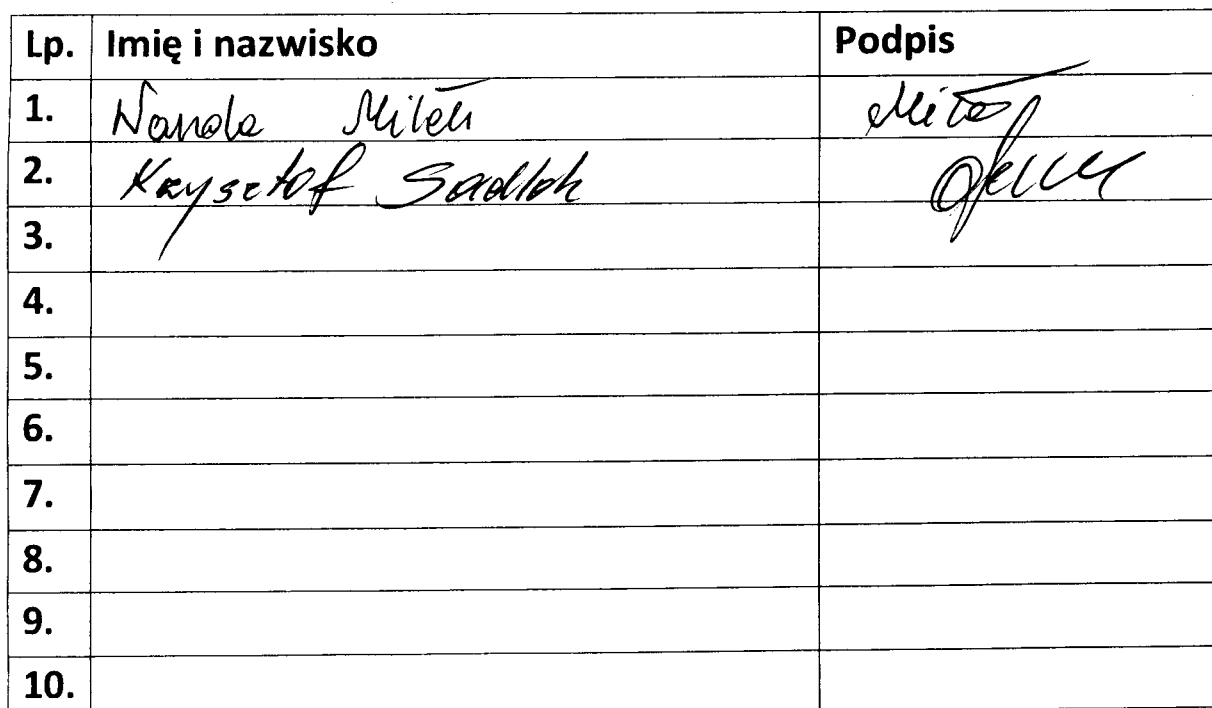 Lp. Imię i nazwisko Podpis
1. Wanda Miłek
2. Krzysztof Sadlok
3.
4.
5.
6.
7.
8.
9.
10.